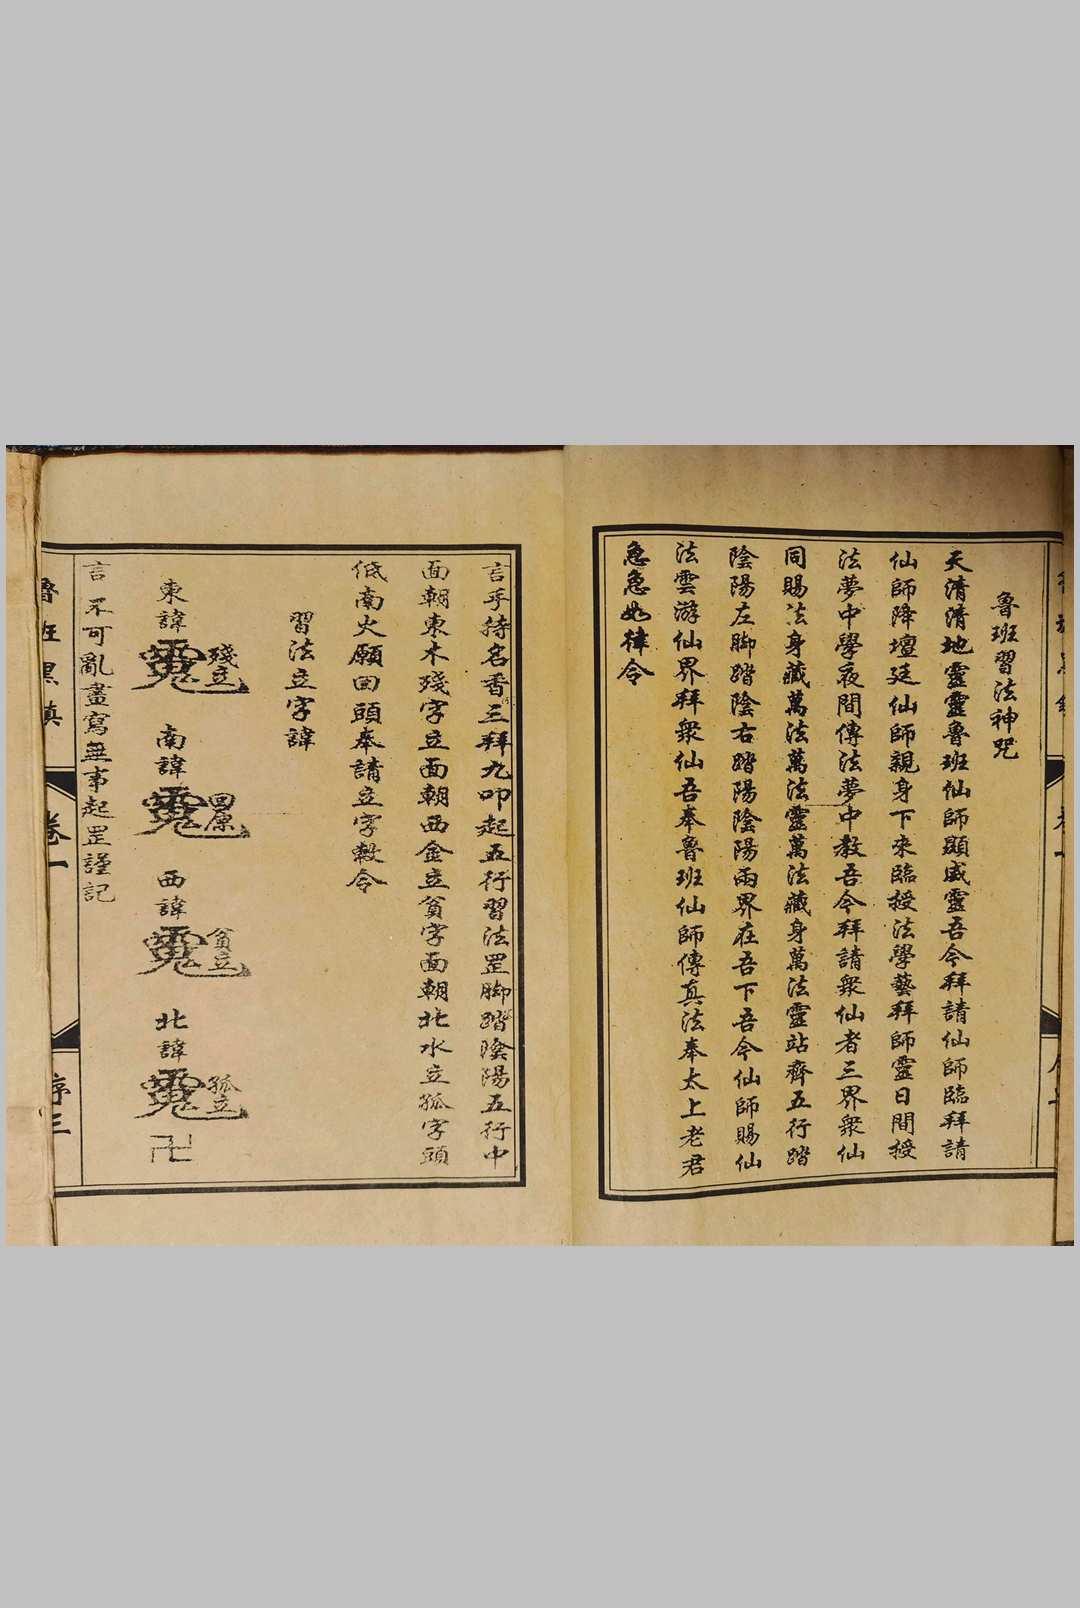 魯班習法神咒
天清清地靈靈魯班仙師顯威靈吾今拜請仙師臨拜請
仙師降壇廷仙師親身下來臨授法學藝拜師靈日間授
法夢中學夜間傳法夢中教吾今拜請衆仙者三界衆仙
同賜法身藏萬法萬法靈萬法藏身萬法靈站齊五行踏
陰陽左脚踏陰右踏陽陰陽兩界在吾下吾今仙師賜仙
法雲游仙界拜衆仙吾奉魯班仙師傳真法奉太上老君
急急如律令
言手持名香三拜九叩起五行習法罡脚踏陰陽五行中
面朝東木殘字立面朝西金立貧字面朝北水立孤字頭
低南火願回頭奉請立字敕令
習法立字諱
東諱 殘立 南諱 回原 西諱 貧立 北諱 孤立 卍
言 不可亂畫寫無事起罡謹記
魯班黑 卷一 序三